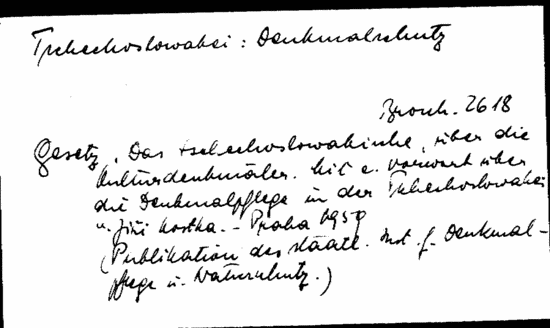 Tschechoslowakei: Denkmalschutz
Brosch. 2618
Gesetz, Das tschechoslowakische, über die
Kulturdenkmäler. Mit e. Vorwort über
die Denkmalpflege in der Tschechoslowakei
v. Jiří Kostka. - Praha 1959
(Publikation des staatl. Inst. f. Denkmal-
pflege u. Naturschutz.)